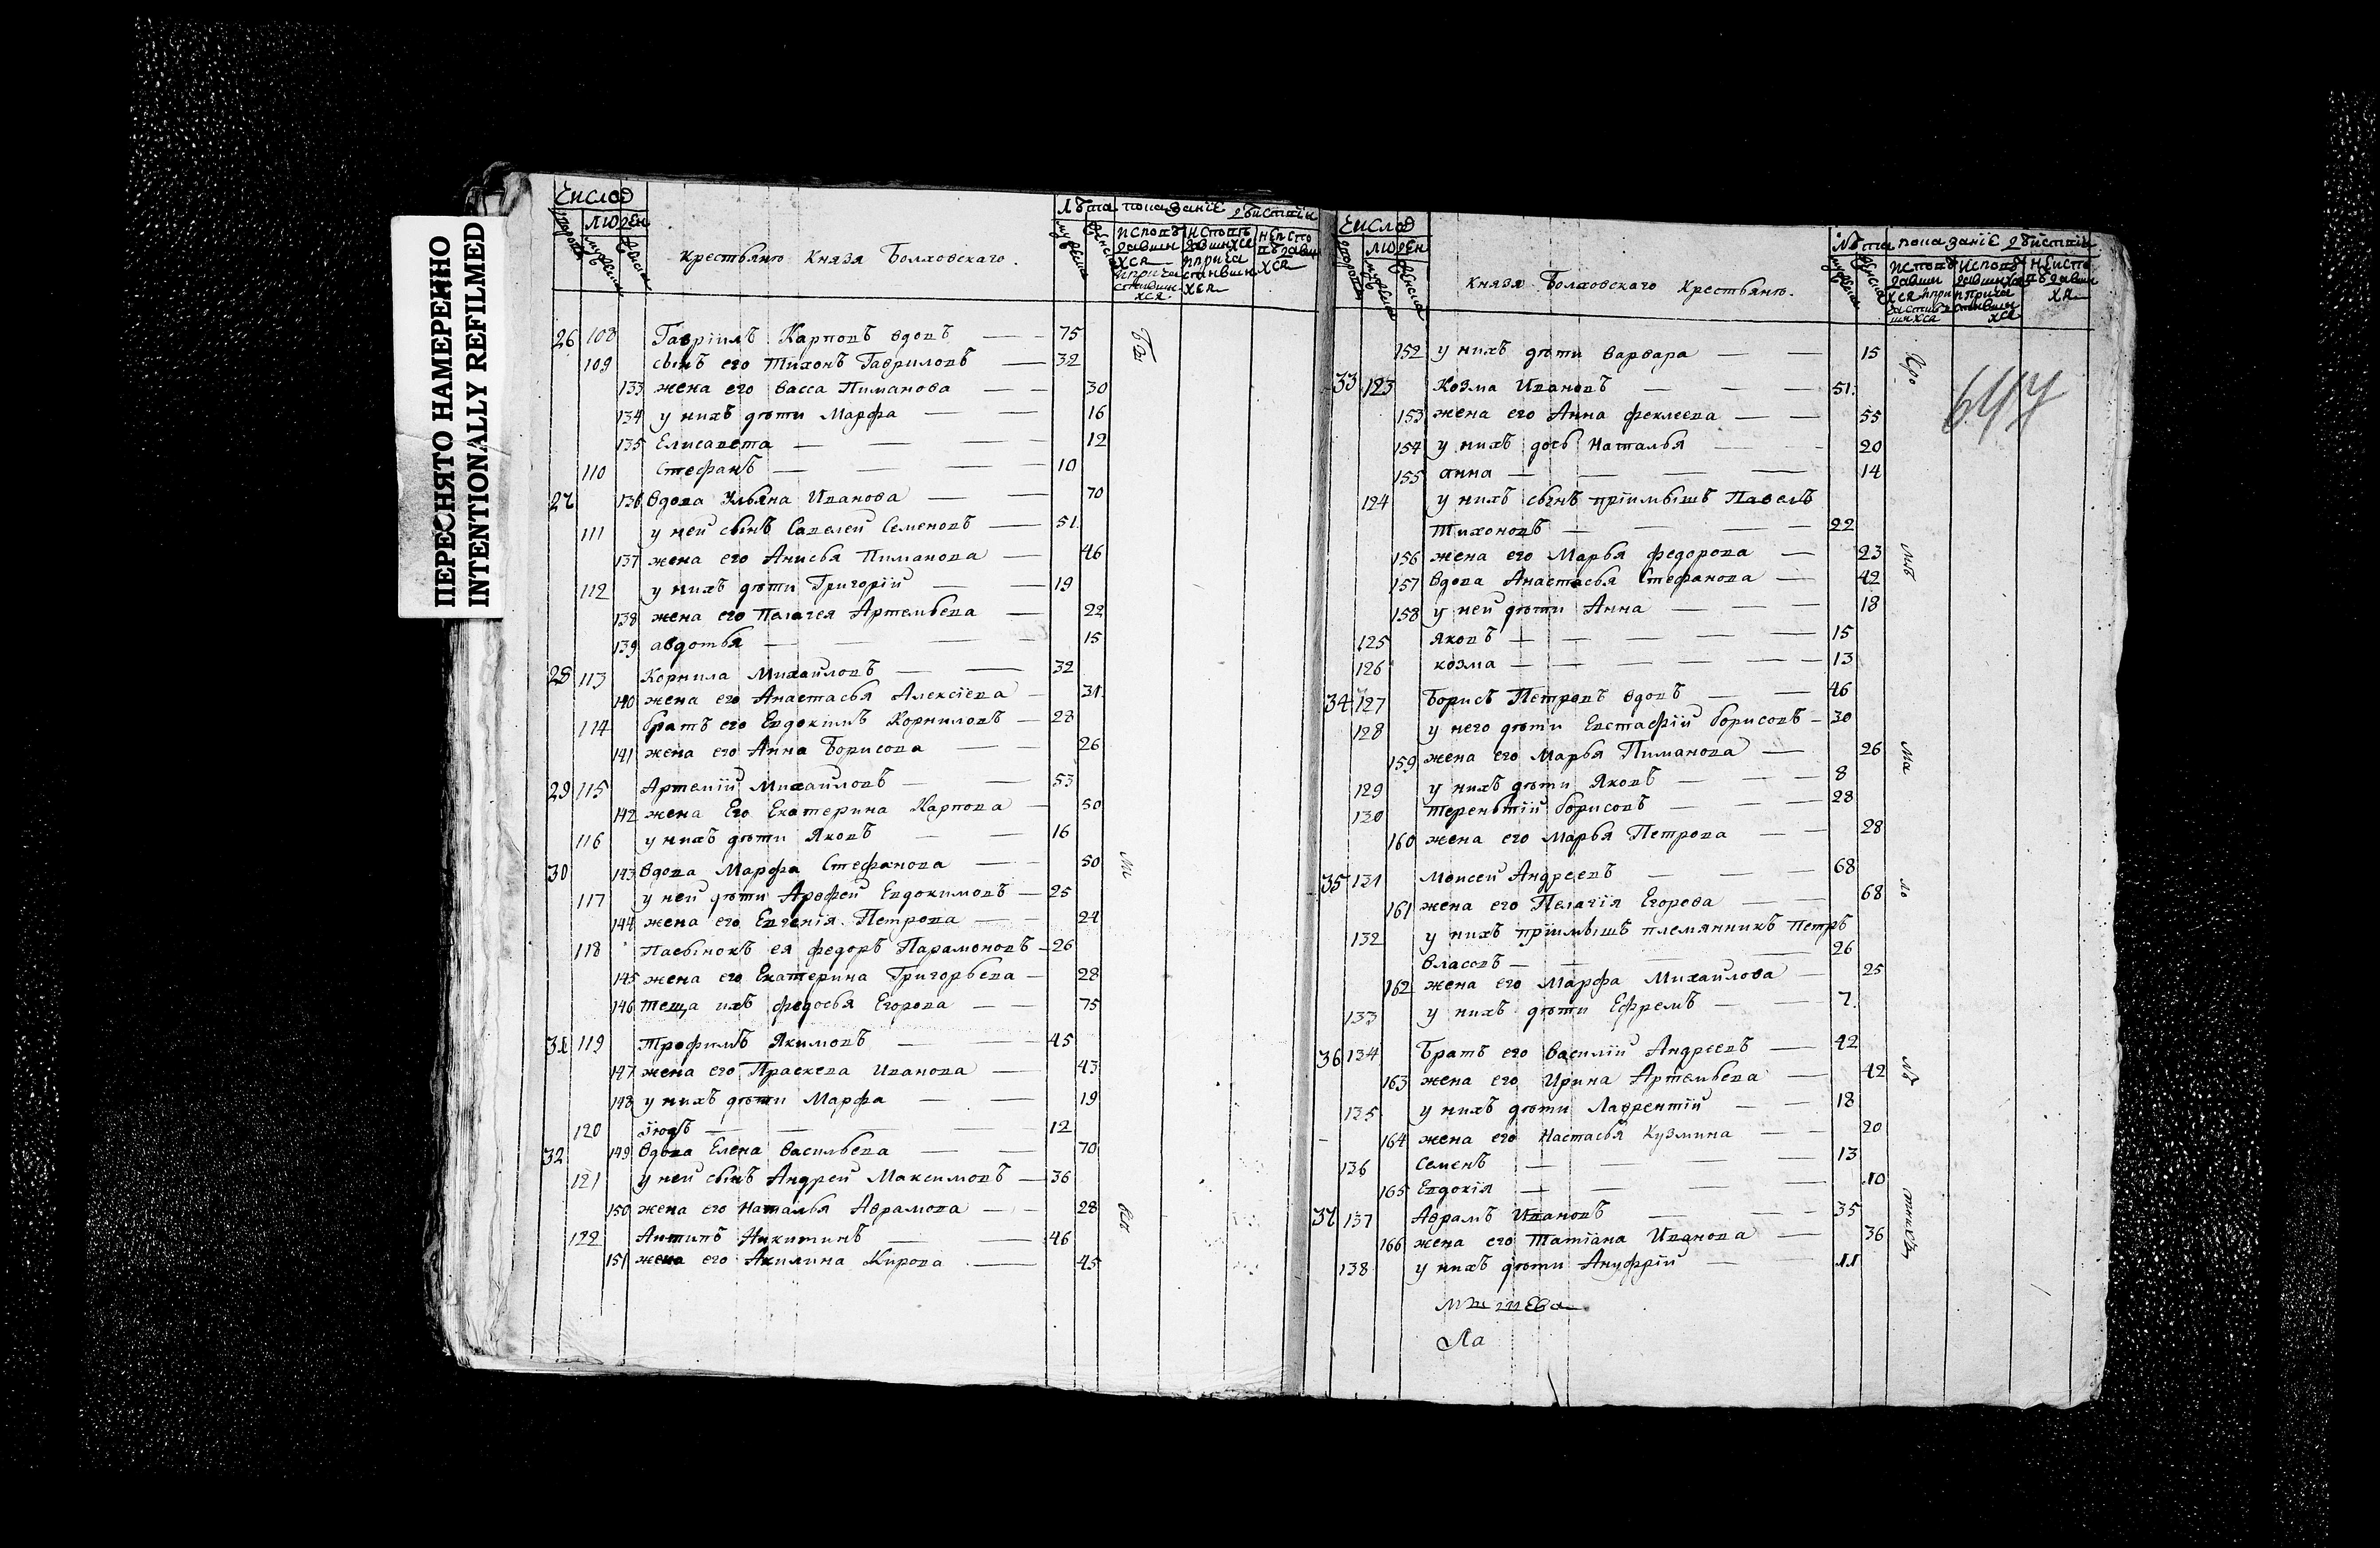 ПЕРЕСНЯТО НАМЕРЕННО
INTENTIONALLY REFILMED
Число
людей
Лѣта показаніе дѣйствія
Крестьянъ Князя Болховскаго.
26 108 Гавріилъ Карповъ вдовъ — 75
109 сынъ его Тихонъ Гавриловъ — 32
133 жена его Васса Пиманова — 30
134 у нихъ дѣти Марфа — 16
135 Елисавета — 12
110 Стефанъ — 10
27 136 вдова Ульяна Иванова — 70
111 у ней сынъ Савелей Семеновъ — 51
137 жена его Анисья Пиманова — 46
112 у нихъ дѣти Григорій — 19
138 жена его Пелагея Артемьева — 22
139 авдотья — 15
28 113 Корнила Михайловъ — 32
140 жена его Анастасья Алексіева — 31
114 братъ его Евдокимъ Корниловъ — 28
141 жена его Анна Борисова — 26
29 115 Артемій Михайловъ — 53
142 жена Его Екатерина Карпова — 50
116 у нихъ дѣти Яковъ — 16
30 143 вдова Марфа Стефанова — 50
117 у ней дѣти Арофей Евдокимовъ — 25
144 жена его Евгенія Петрова — 24
118 Пасынокъ ея федоръ Парамоновъ — 26
145 жена его Екатерина Григорьева — 28
146 теща ихъ федосья Егорова — 75
31 119 Трофимъ Якимовъ — 45
147 жена его Праскева Иванова — 43
148 у нихъ дѣти Марфа — 19
120 — 12
32 149 вдова Елена Васильева — 70
121 у ней сынъ Андрей Максимовъ — 36
150 жена его Наталья Аврамова — 28
122 Антипъ Никитинъ — 46
151 жена его Акилина Кирова — 45
Число
людей
Лѣта показаніе дѣйствія
Князя Болховскаго Крестьянъ.
152 у нихъ дѣти варвара — 15
33 123 Козма Ивановъ — 51
153 жена его Анна феклеева — 55
154 у нихъ дочь Наталья — 20
155 анна — 14
124 у нихъ сынъ пріимышъ Павелъ
Тихоновъ — 22
156 жена его Марья федорова — 23
157 вдова Анастасья Стефанова — 42
158 у ней дѣти Анна — 18
125 яковъ — 15
126 козма — 13
34 127 Борисъ Петровъ вдовъ — 46
128 у него дѣти Евстафій Борисовъ — 30
159 жена его Марья Пиманова — 26
129 у нихъ дѣти Яковъ — 8
130 терентій борисовъ — 28
160 жена его марья Петрова — 28
35 131 Моисей Андреевъ — 68
161 жена его Пелагія Егорова — 68
132 у нихъ пріимышъ племянникъ Петръ
власовъ — 26
162 жена его Марфа Михайлова — 25
133 у нихъ дѣти Ефремъ — 7
36 134 Братъ его Василій Андреевъ — 42
163 жена его Ирина Артемьева — 42
135 у нихъ дѣти Лаврентій — 18
164 жена его Настасья Кузмина — 20
136 Семенъ — 13
165 Евдокія — 10
37 137 Аврамъ Ивановъ — 35
166 жена его Татіана Иванова — 36
138 у нихъ дѣти Ануфрій — 11
Ла